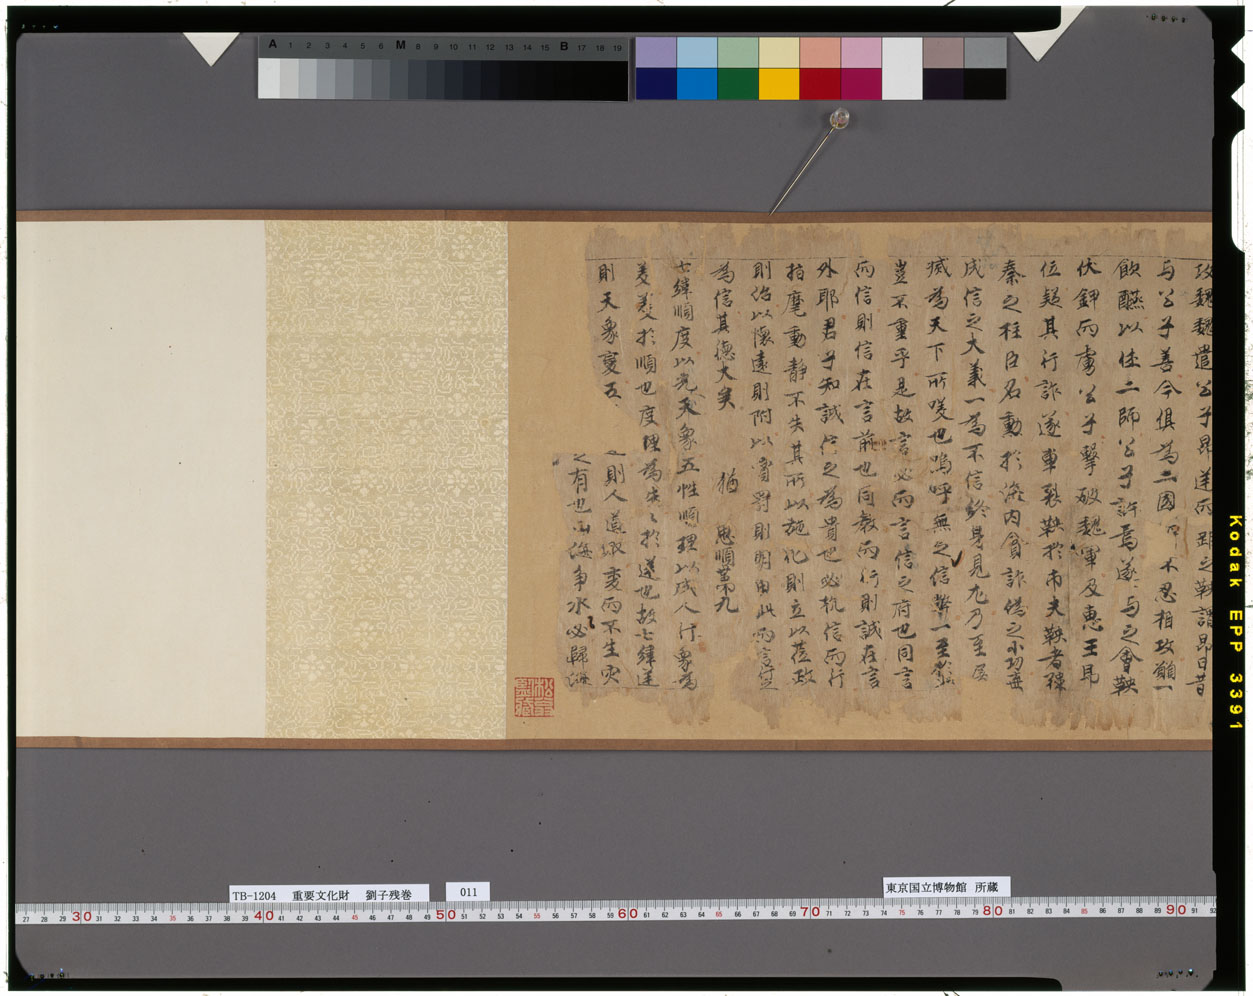 攻魏魏遣公子昂逆而距之鞅謂昂曰昔
与公子善今俱為二國將不忍相攻願一
飲醼以佳二師公子許焉遂与之會鞅
伏鉀而虜公子擊破魏軍及惠王昂
位疑其行詐遂車裂鞅於市夫鞅者
秦之柱臣名動於海内貪詐偽之小功
成信之大義一為不信終身見尤乃至屠
滅為天下所咲也嗚呼無之信
豈不重乎是故言必而言信之府也同言
而信則信在言前也同教而行則誠在言
外耶君子知誠信之為貴也必杭信而行
指麾動静不失其所以施化則立以莅政
則治以懷遠則附以賞罸則明由此而言信之
為信其德大矣　猶　思順第九
七緯順度以光天象五性順理以成人行象為
美美於順也度理為失失於逆也故七緯逆
則天象變五
之則人道敗變而不生灾
之有也山海争水必歸海
TB-1204　重要文化財　劉子残巻
011
東京国立博物館　所蔵
Kodak EPP 3391